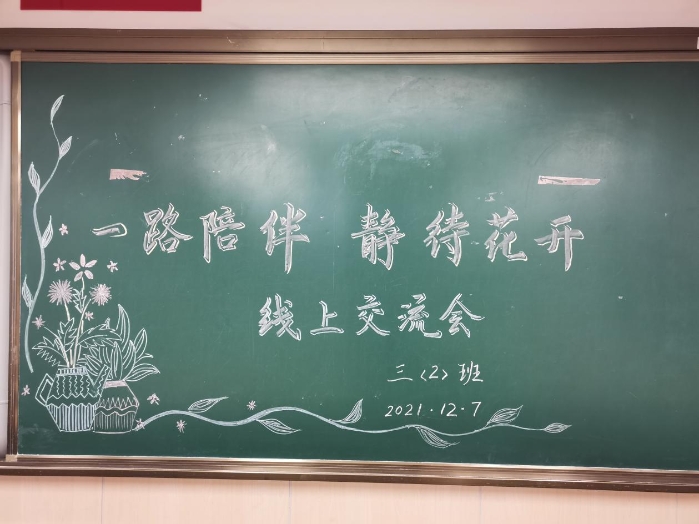 一路陪伴 静待花开
线上交流会
三〈2〉班
2021.12.7